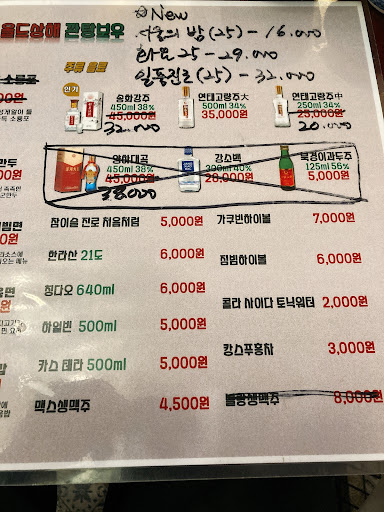 올드상해 관짱보우
☆ New
서울의 밤(25) - 16.000
화요 25 - 29.000
일품진로(25) - 32.000
소룡포
주류 음료
인기
중화강주
450ml 38%
45,000원
32.000
연태고량주大
500ml 34%
35,000원
연태고량주中
250ml 34%
25,000원
20.000
450ml 38%
45,000원
38.000
강소백
300ml 40%
28,000원
북경이과두주
125ml 56%
5,000원
참이슬 진로 처음처럼 5,000원
한라산 21도 6,000원
칭다오 640ml 6,000원
하얼빈 500ml 5,000원
카스 테라 500ml 5,000원
맥스생맥주 4,500원
가쿠빈하이볼 7,000원
짐빔하이볼 6,000원
콜라 사이다 토닉워터 2,000원
캉스푸홍차 3,000원
블랑생맥주 8,000원